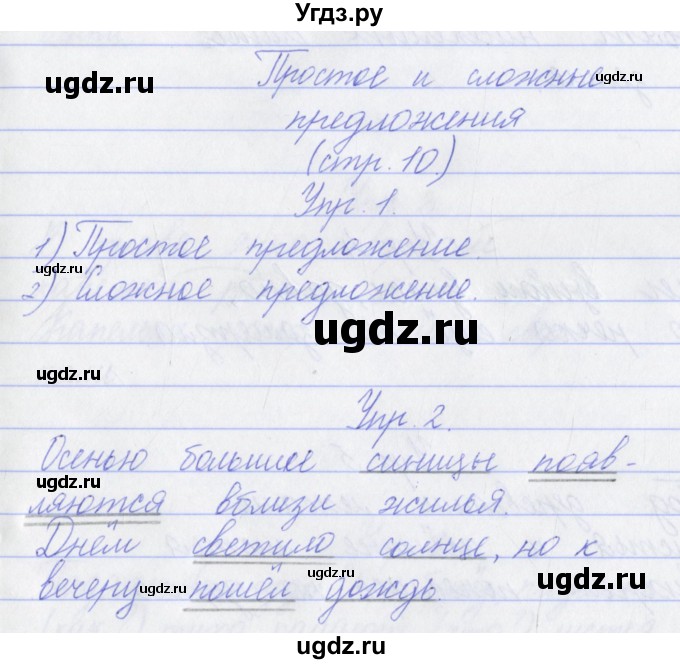 Угдз.ру
Простое и сложные
предложения
(стр. 10)
Упр. 1.
1) Простое предложение.
2) Сложное предложение.
Упр. 2.
Осенью большие синицы появ-
ляются вблизи жилья.
Днём светило солнце, но к
вечеру пошёл дождь.
ugdz.ru
ugdz.ru
ugdz.ru
ugdz.ru
ugdz.ru
ugdz.ru
ugdz.ru
ugdz.ru
ugdz.ru
ugdz.ru